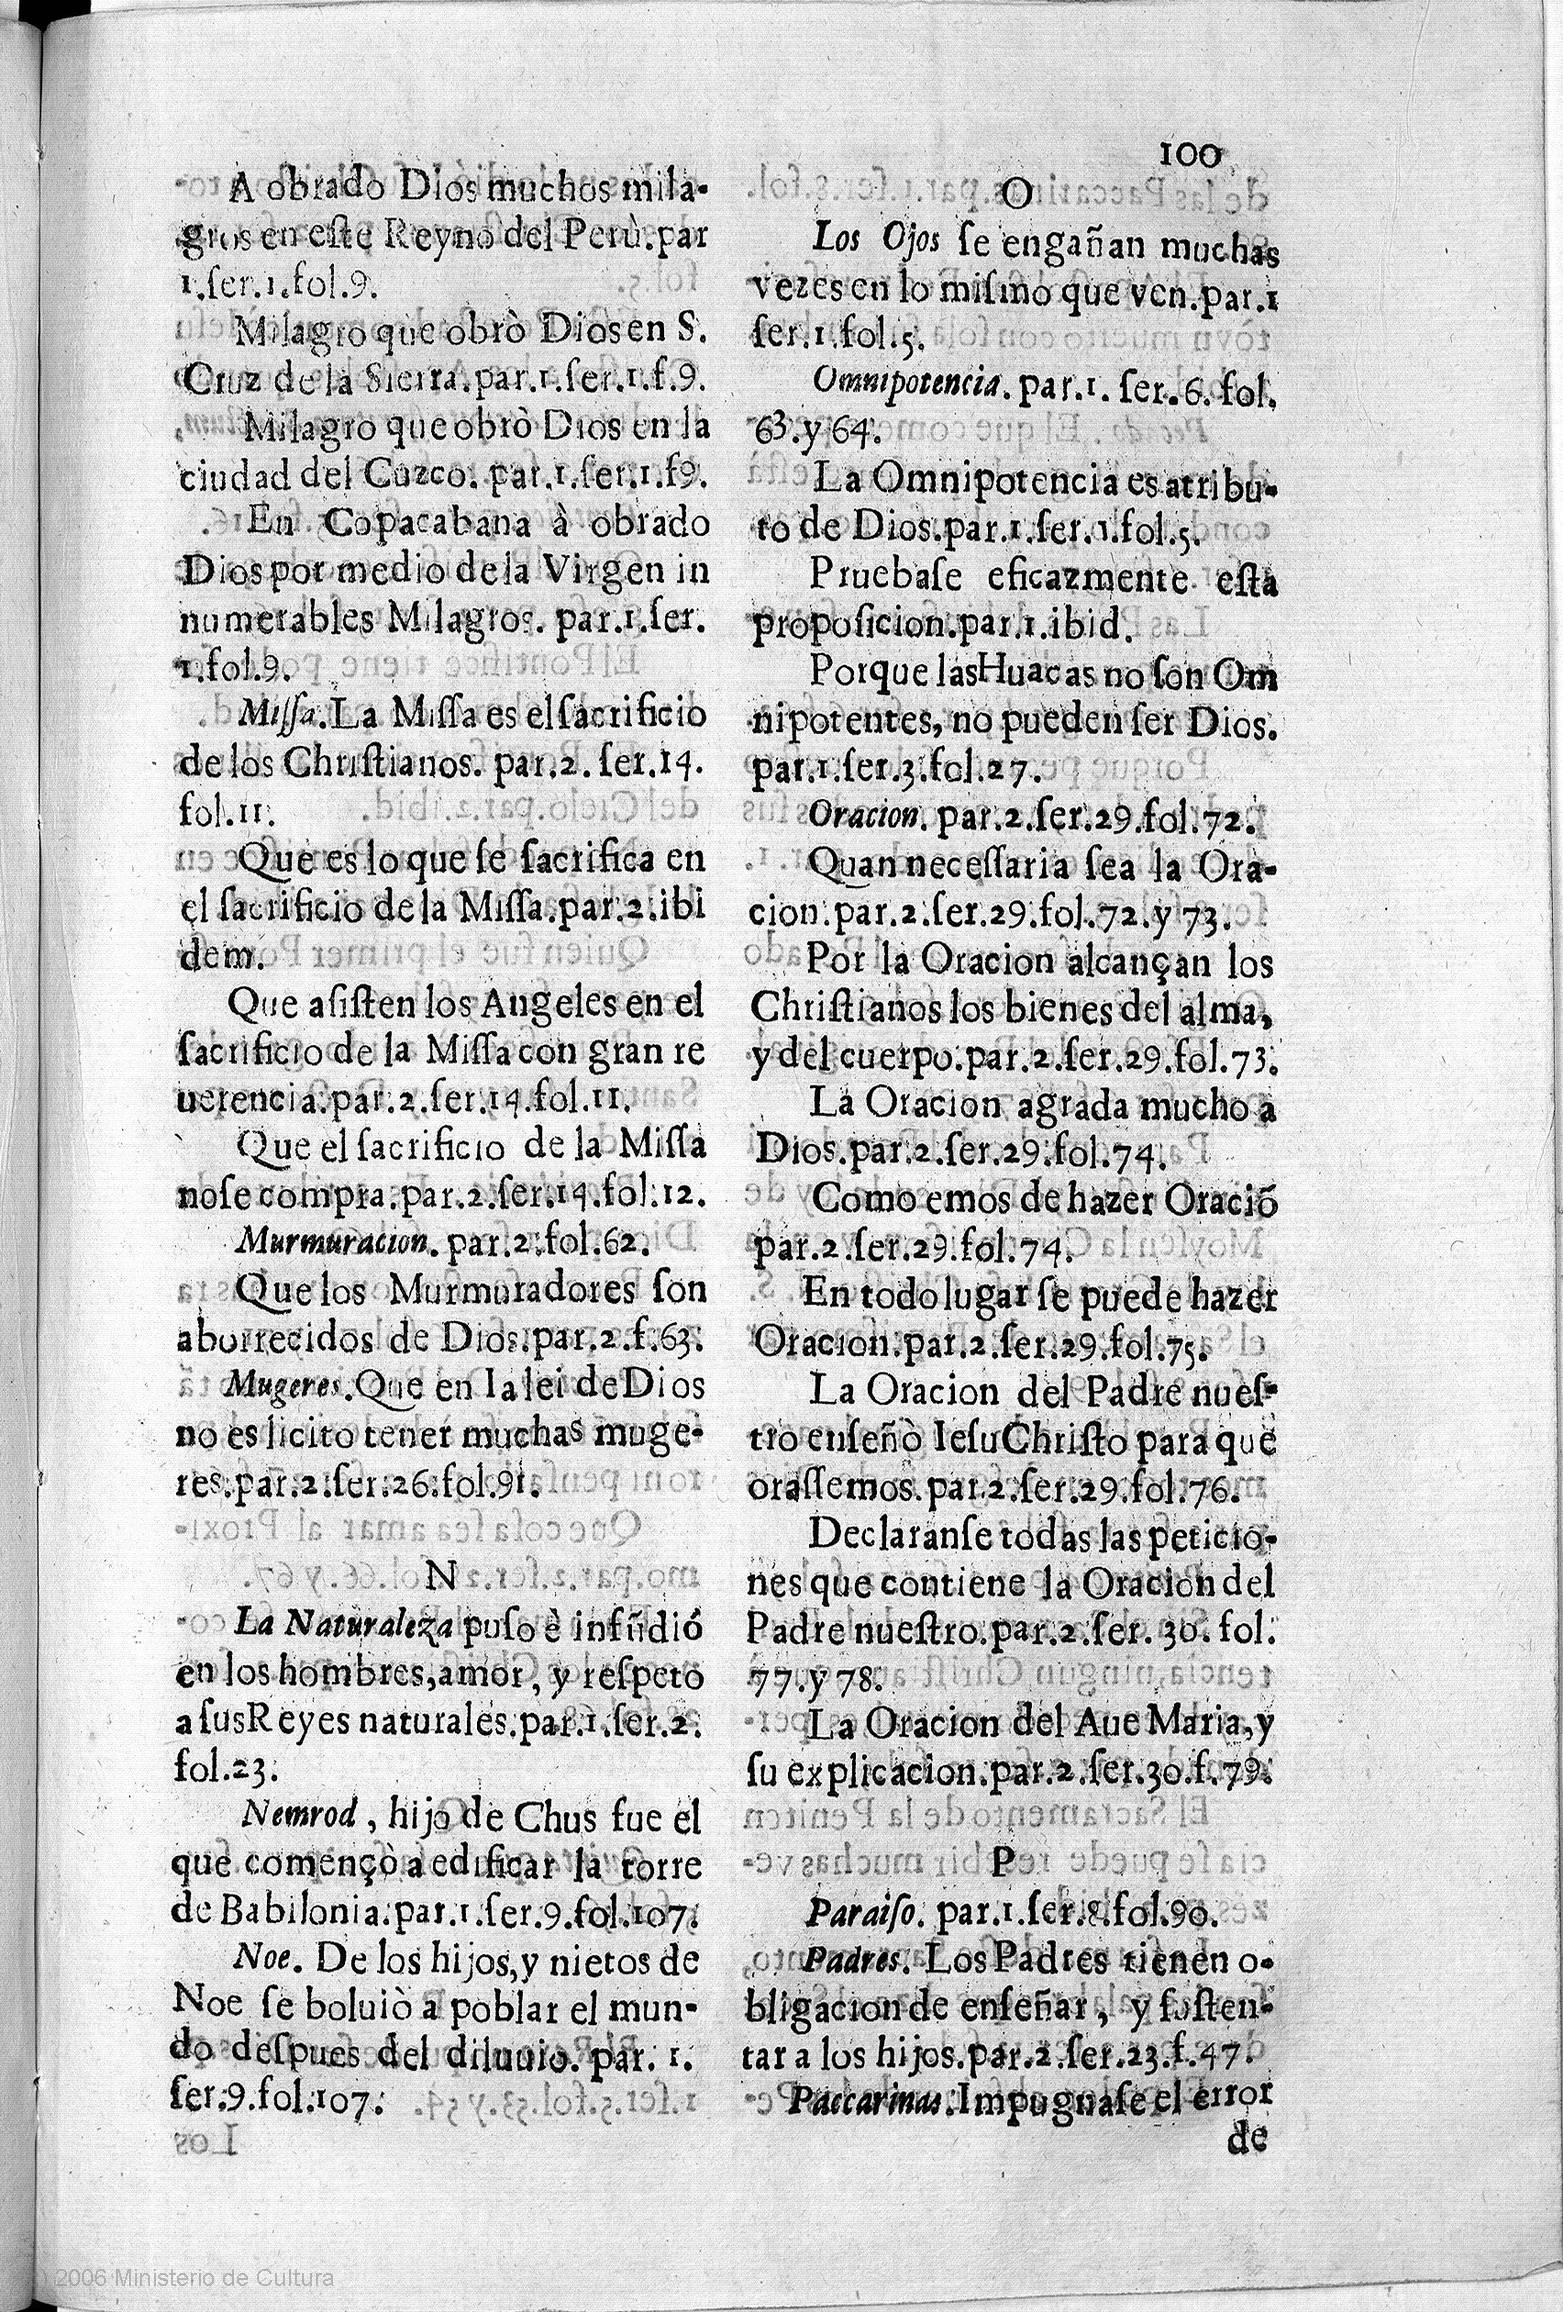 100
A obrado Dios muchos mila-
gros en eſte Reyno del Perù.par
1.ſer.1.fol.9.
Milagro que obrò Dios en S.
Cruz de la Sierra.par.1.ſer.1.f.9.
Milagro que obrò Dios en la
ciudad del Cuzco. par.1.ſer.1.f9.
En Copacabana à obrado
Dios por medio de la Virgen in
numerables Milagros. par.1.ſer.
1.fol.9.
Miſſa.La Miſſa es el ſacrificio
de los Chriſtianos. par.2. ſer.14.
fol.11.
Que es lo que ſe ſacrifica en
el ſacrificio de la Miſſa.par.2.ibi
dem.
Que aſiſten los Angeles en el
ſacrificio de la Miſſa con gran re
uerencia.par.2.ſer.14.fol.11.
Que el ſacrificio de la Miſſa
no ſe compra.par.2.ſer.14.fol.12.
Murmuracion. par.2.fol.62.
Que los Murmuradores ſon
aborrecidos de Dios.par.2.f.63.
Mugeres.Que en la lei de Dios
no es licito tener muchas muge-
res.par.2.ſer.26.fol.91.
N
La Naturaleza puſo è infũdió
en los hombres,amor, y reſpeto
a ſus Reyes naturales.par.1.ſer.2.
fol.23.
Nemrod , hijo de Chus fue el
que començò a edificar la torre
de Babilonia.par.1.ſer.9.fol.107.
Noe. De los hijos,y nietos de
Noe ſe boluiò a poblar el mun-
do deſpues del diluuio. par. 1.
ſer.9.fol.107.
O
Los Ojos ſe engañan muchas
vezes en lo miſmo que ven.par.1
ſer.1.fol.5.
Omnipotencia. par.1. ſer.6. fol.
63.y 64.
La Omnipotencia es atribu-
to de Dios.par.1.ſer.1.fol.5.
Pruebaſe eficazmente eſta
propoſicion.par.1.ibid.
Porque las Huacas no ſon Om
nipotentes, no pueden ſer Dios.
par.1.ſer.3.fol.27.
Oracion. par.2.ſer.29.fol.72.
Quan neceſſaria ſea la Ora-
cion.par.2.ſer.29.fol.72.y 73.
Por la Oracion alcançan los
Chriſtianos los bienes del alma,
y del cuerpo.par.2.ſer.29.fol.73.
La Oracion agrada mucho a
Dios.par.2.ſer.29.fol.74.
Como emos de hazer Oraciõ
par.2.ſer.29.fol.74.
En todo lugar ſe puede hazer
Oracion.par.2.ſer.29.fol.75.
La Oracion del Padre nueſ-
tro enſeñò Ieſu Chriſto para que
oraſſemos.par.2.ſer.29.fol.76.
Declaranſe todas las peticio-
nes que contiene la Oracion del
Padre nueſtro.par.2.ſer. 30. fol.
77.y 78.
La Oracion del Aue Maria,y
ſu explicacion.par.2.ſer.30.f.79.
P
Paraiſo. par.1.ſer.8.fol.90.
Padres. Los Padres tienen o-
bligacion de enſeñar , y ſuſten-
tar a los hijos.par.2.ſer.23.f.47.
Paccarinas.Impugnaſe el error
de
© 2006 Ministerio de Cultura